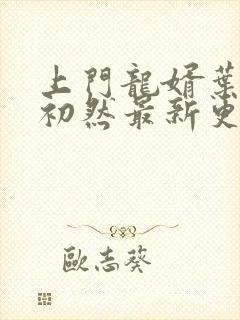 上門龍婿葉
初然最新更
歐志葵